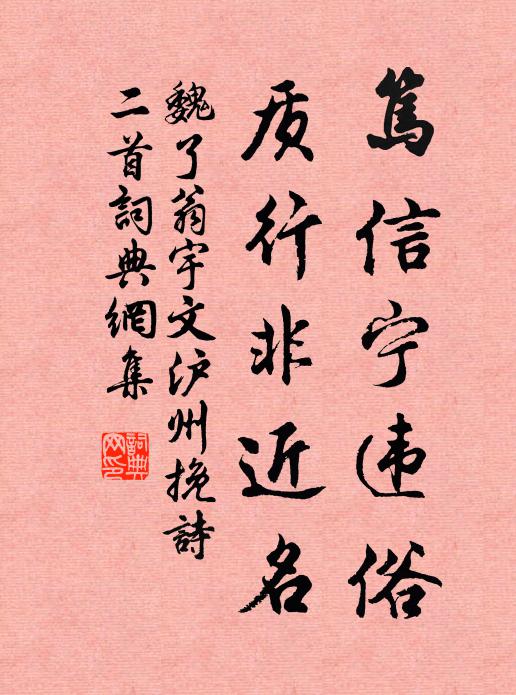 篤信宁违俗
质行非近名
魏了翁宇文泸州挽詩
二首詞典網集
詞典网印